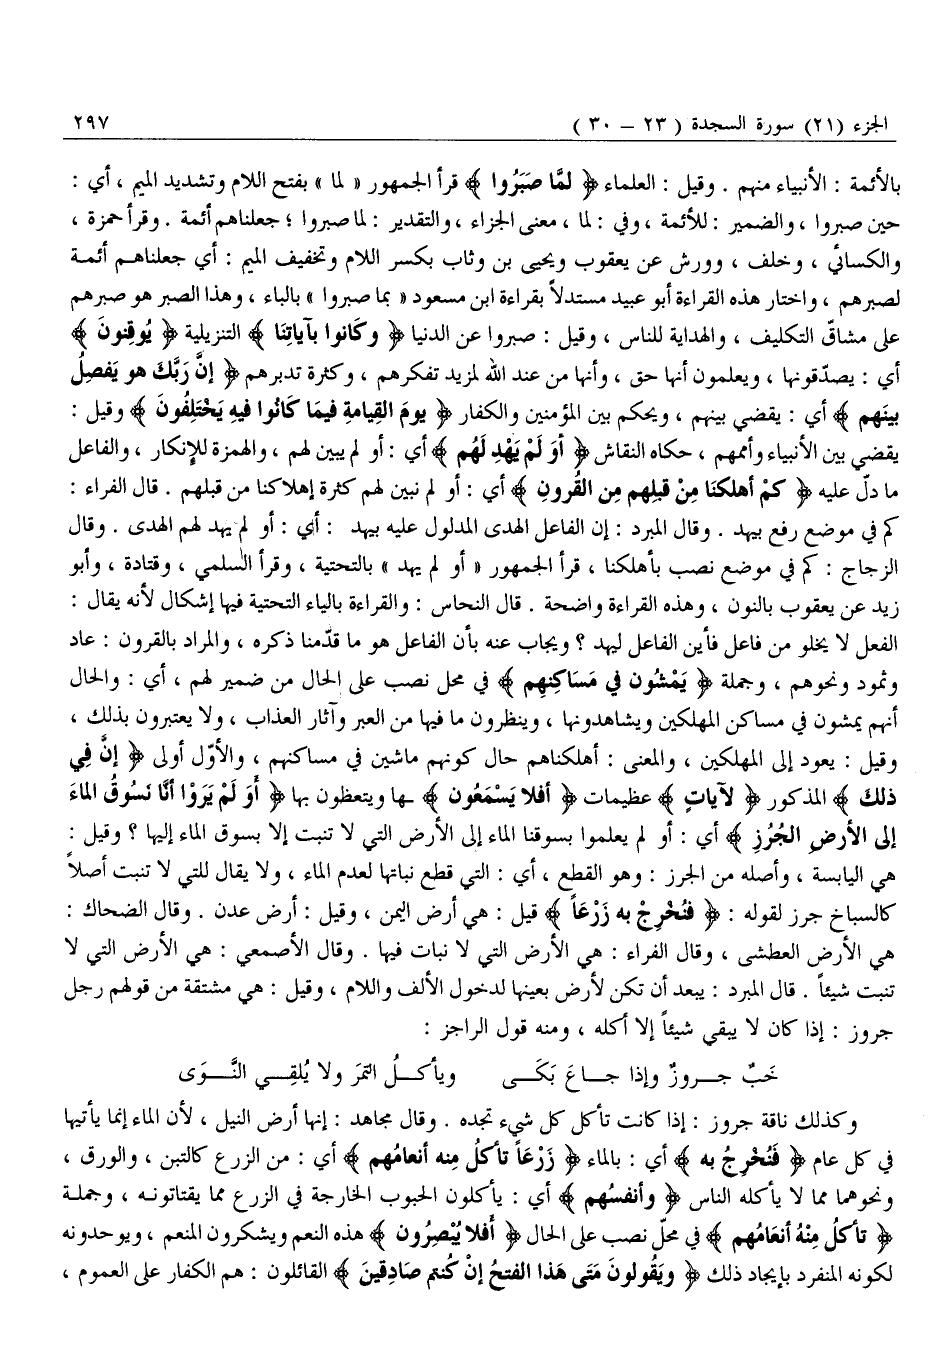 الجزء (٢١) سورة السجدة ( ٢٣ – ٣٠ ) ٢٩٧
بالأئمة : الأنبياء منهم . وقيل : العلماء ﴿ لمَّا صَبَرُوا ﴾ قرأ الجمهور « لما » بفتح اللام وتشديد الميم ، أي :
حين صبروا ، والضمير : للأئمة ، وفي : لما ، معنى الجزاء ، والتقدير : لما صبروا ؛ جعلناهم أئمة . وقرأ حمزة ،
والكسائي ، وخلف ، وورش عن يعقوب ويحيى بن وثاب بكسر اللام وتخفيف الميم : أي جعلناهم أئمة
لصبرهم ، واختار هذه القراءة أبو عبيد مستدلاً بقراءة ابن مسعود « بما صبروا » بالباء ، وهذا الصبر هو صبرهم
على مشاقّ التكليف ، والهداية للناس ، وقيل : صبروا عن الدنيا ﴿ وكَانوا بآياتِنَا ﴾ التنزيلية ﴿ يُوقِنونَ ﴾
أي : يصدّقونها ، ويعلمون أنها حق ، وأنها من عند الله لمزيد تفكرهم ، وكثرة تدبرهم ﴿ إنَّ رَبَّكَ هو يَفصِلُ
بينَهم ﴾ أي : يقضي بينهم ، ويحكم بين المؤمنين والكفار ﴿ يومَ القِيامةِ فيمَا كَانُوا فيهِ يَخْتَلِفُونَ ﴾ وقيل :
يقضي بين الأنبياء وأممهم ، حكاه النقاش ﴿ أوَ لَمْ يَهْدِ لَهُم ﴾ أي : أو لم يبين لهم ، والهمزة للإنكار ، والفاعل
ما دلّ عليه ﴿ كمْ أهلكنَا مِنْ قبلِهم مِن القُرونِ ﴾ أي : أو لم نبين لهم كثرة إهلاكنا من قبلهم . قال الفراء :
كم في موضع رفع بيهد . وقال المبرد : إن الفاعل الهدى المدلول عليه بيهد : أي : أو لم يهد لهم الهدى . وقال
الزجاج : كم في موضع نصب بأهلكنا ، قرأ الجمهور « أو لم يهد » بالتحتية ، وقرأ السلمي ، وقتادة ، وأبو
زيد عن يعقوب بالنون ، وهذه القراءة واضحة . قال النحاس : والقراءة بالياء التحتية فيها إشكال لأنه يقال :
الفعل لا يخلو من فاعل فأين الفاعل ليهد ؟ ويجاب عنه بأن الفاعل هو ما قدّمنا ذكره ، والمراد بالقرون : عاد
وثمود ونحوهم ، وجملة ﴿ يَمْشُون في مَسَاكِنِهم ﴾ في محل نصب على الحال من ضمير لهم ، أي : والحال
أنهم يمشون في مساكن المهلكين ويشاهدونها ، وينظرون ما فيها من العبر وآثار العذاب ، ولا يعتبرون بذلك ،
وقيل : يعود إلى المهلكين ، والمعنى : أهلكناهم حال كونهم ماشين في مساكنهم ، والأوّل أولى ﴿ إنَّ فِي
ذلكَ ﴾ المذكور ﴿ لآياتٍ ﴾ عظيمات ﴿ أفلا يَسْمَعُون ﴾ ـها ويتعظون بها ﴿ أَوَ لَمْ يَرَوْا أنَّا نَسُوقُ الماءَ
إلى الأرضِ الجُرُزِ ﴾ أي : أو لم يعلموا بسوقنا الماء إلى الأرض التي لا تنبت إلا بسوق الماء إليها ؟ وقيل :
هي اليابسة ، وأصله من الجرز : وهو القطع ، أي : التي قطع نباتها لعدم الماء ، ولا يقال للتي لا تنبت أصلاً
كالسباخ جرز لقوله : ﴿ فنُخْرِجْ به زَرْعَاً ﴾ قيل : هي أرض اليمن ، وقيل : أرض عدن . وقال الضحاك :
هي الأرض العطشى ، وقال الفراء : هي الأرض التي لا نبات فيها . وقال الأصمعي : هي الأرض التي لا
تنبت شيئاً . قال المبرد : يبعد أن تكن لأرض بعينها لدخول الألف واللام ، وقيل : هي مشتقة من قولهم رجل
جروز : إذا كان لا يبقي شيئاً إلا أكله ، ومنه قول الراجز :
خَبٌ جـــروزٌ وإذا جـــاعَ بَكَـــى ويأكـــلُ التمرَ ولا يُلقِـــي النَّـــوَى
وكذلك ناقة جروز : إذا كانت تأكل كل شيء تجده . وقال مجاهد : إنها أرض النيل ، لأن الماء إنما يأتيها
في كل عام ﴿ فَنُخْرِجُ به ﴾ أي : بالماء ﴿ زَرْعَاً تأكلُ مِنه أنعامُهم ﴾ أي : من الزرع كالتبن ، والورق ،
ونحوهما مما لا يأكله الناس ﴿ وأنفسُهم ﴾ أي : يأكلون الحبوب الخارجة في الزرع مما يقتاتونه ، وجملة
﴿ تأكلُ مِنْهُ أنعَامُهم ﴾ في محلّ نصب على الحال ﴿ أفلا يُبْصِرُون ﴾ هذه النعم ويشكرون المنعم ، ويوحدونه
لكونه المنفرد بإيجاد ذلك ﴿ ويَقُولونَ مَتَى هَذا الفتحُ إنْ كُنتم صَادِقينَ ﴾ القائلون : هم الكفار على العموم ،